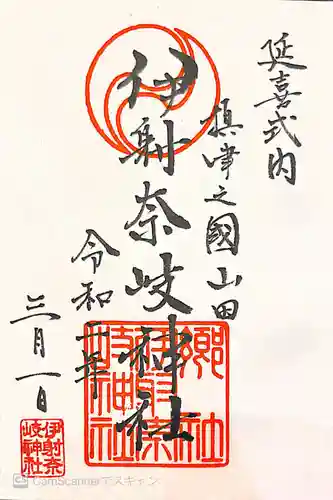 延喜式内
摂津之國山田
伊射奈岐神社
令和二年
三月一日
郷社
伊射奈
岐神社
伊射奈
岐神社
CamScannerでスキャン